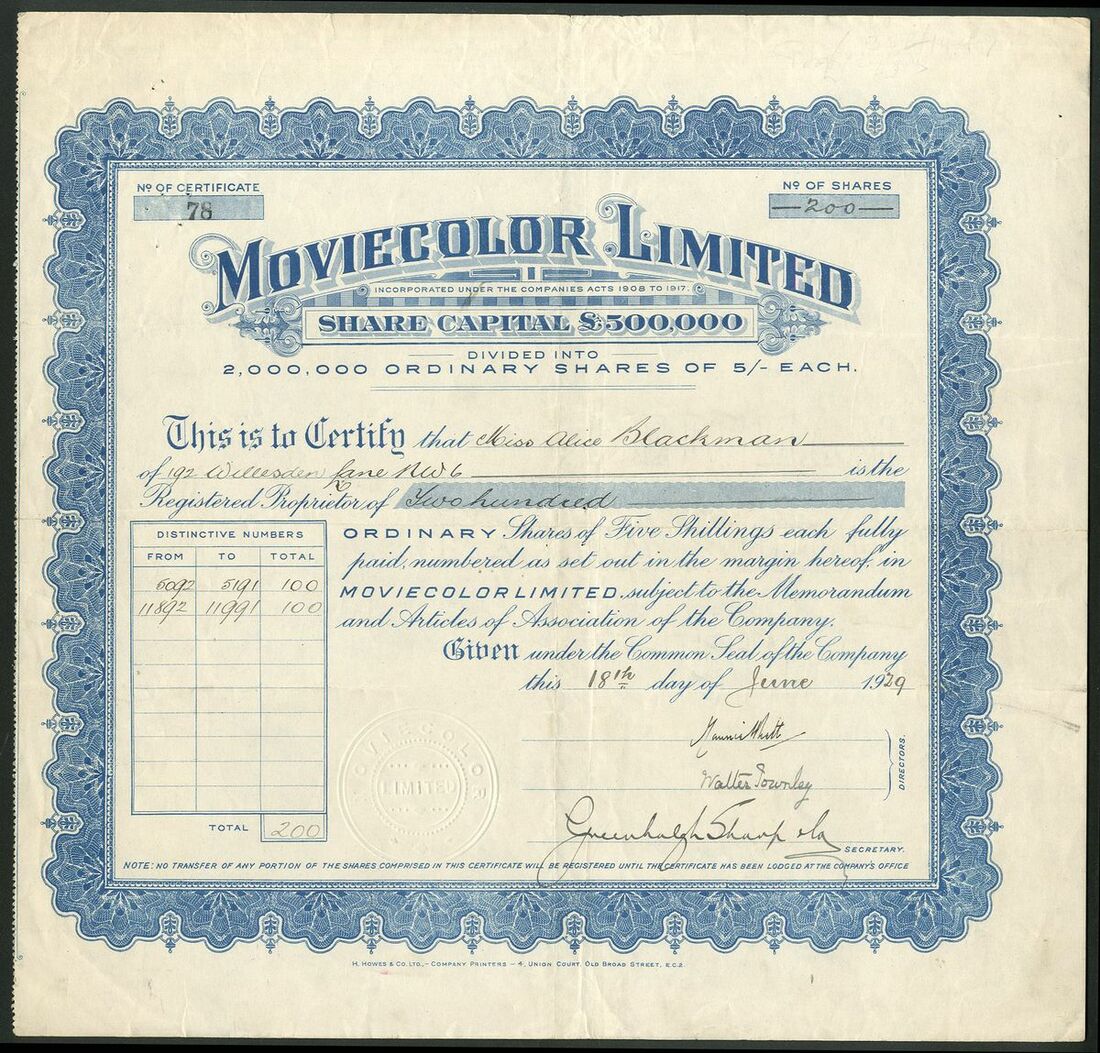 Nº OF CERTIFICATE
78
Nº OF SHARES
200
MOVIECOLOR LIMITED
INCORPORATED UNDER THE COMPANIES ACTS 1908 TO 1917.
SHARE CAPITAL £500,000
DIVIDED INTO
2,000,000 ORDINARY SHARES OF 5/- EACH.
This is to Certify that Miss Alice Blackman
of 192 Willesden Lane NW6 is the
Registered Proprietor of Two hundred
ORDINARY Shares of Five Shillings each fully
paid, numbered as set out in the margin hereof, in
MOVIECOLOR LIMITED, subject to the Memorandum
and Articles of Association of the Company.
Given under the Common Seal of the Company
this 18th day of June 1929
DISTINCTIVE NUMBERS
FROM TO TOTAL
5092 5191 100
11892 11991 100
TOTAL 200
MOVIECOLOR
LIMITED
Walter Townley
DIRECTORS.
Greenhalgh Sharp
SECRETARY.
NOTE: NO TRANSFER OF ANY PORTION OF THE SHARES COMPRISED IN THIS CERTIFICATE WILL BE REGISTERED UNTIL THE CERTIFICATE HAS BEEN LODGED AT THE COMPANY'S OFFICE
H. HOWES & CO. LTD., - COMPANY PRINTERS - 4, UNION COURT, OLD BROAD STREET, E.C.2.